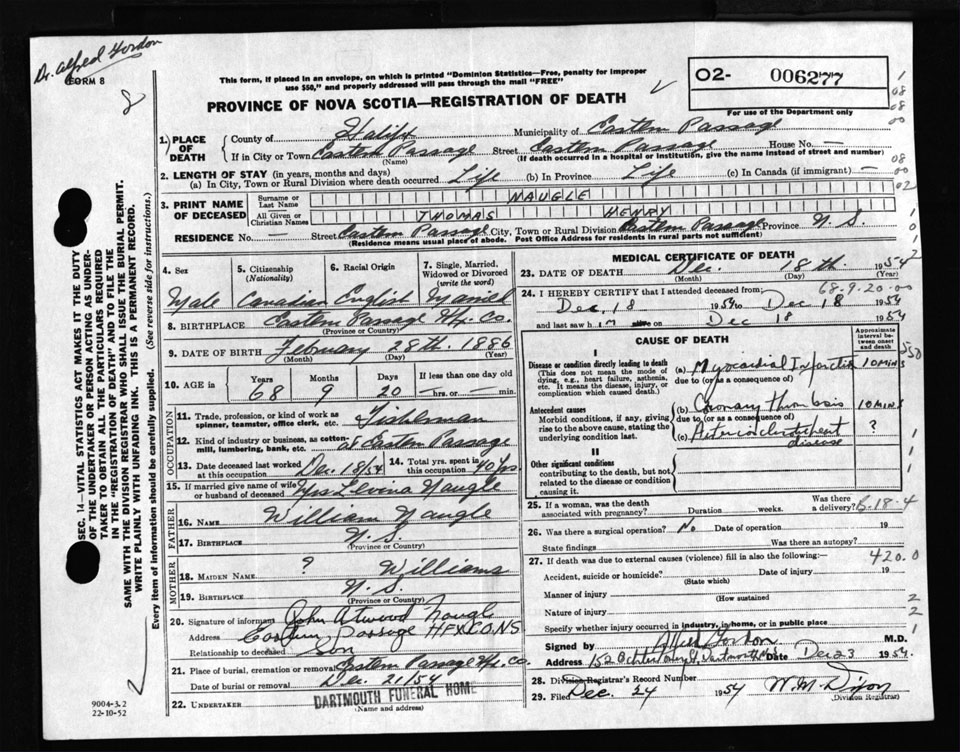 Dr. Alfred Gordon
FORM 8
8
This form, if placed in an envelope, on which is printed "Dominion Statistics—Free, penalty for improper
use $50," and properly addressed will pass through the mail "FREE"
PROVINCE OF NOVA SCOTIA—REGISTRATION OF DEATH
02- 006277
For use of the Department only
1. PLACE OF DEATH County of Halifx Municipality of Eastern Passage
If in City or Town Eastern Passage Street Eastern Passage House No. —
(Name) (If death occurred in a hospital or institution, give the name instead of street and number)
2. LENGTH OF STAY (in years, months and days)
(a) In City, Town or Rural Division where death occurred Life (b) In Province Life (c) In Canada (if immigrant) —
3. PRINT NAME OF DECEASED Surname or Last Name NAUGLE
All Given or Christian Names THOMAS HENRY
RESIDENCE No. — Street Eastern Passage City, Town or Rural Division Eastern Passage Province N.S.
(Residence means usual place of abode. Post Office Address for residents in rural parts not sufficient)
4. Sex Male
5. Citizenship (Nationality) Canadian
6. Racial Origin English
7. Single, Married, Widowed or Divorced (write the word)
8. BIRTHPLACE Eastern Passage Hfx. Co.
(Province or Country)
9. DATE OF BIRTH February 28th. 1886
(Month) (Day) (Year)
10. AGE in Years Months Days If less than one day old
68 9 20 hrs. or min.
11. Trade, profession, or kind of work as
spinner, teamster, office clerk, etc. Fisherman
12. Kind of industry or business, as cotton-
mill, lumbering, bank, etc. at Eastern Passage
13. Date deceased last worked at this occupation Dec. 18/54 14. Total yrs. spent in this occupation 40 yrs
15. If married give name of wife or husband of deceased Mrs Levina Naugle
OCCUPATION
FATHER
16. NAME William Naugle
17. BIRTHPLACE N.S.
(Province or Country)
MOTHER
18. MAIDEN NAME ? Williams
19. BIRTHPLACE N.S.
(Province or Country)
20. Signature of informant John Atwood Naugle
Address Eastern Passage HFX CO. NS
Relationship to deceased Son
21. Place of burial, cremation or removal Eastern Passage Hfx. Co.
Date of burial or removal Dec. 21/54
22. UNDERTAKER DARTMOUTH FUNERAL HOME
(Name and address)
9004-3.2
22-10-52
MEDICAL CERTIFICATE OF DEATH
23. DATE OF DEATH Dec. 18th. 1954
(Month) (Day) (Year)
68-9-20-00
24. I HEREBY CERTIFY that I attended deceased from:
Dec. 18 1954 to Dec 18 1954
and last saw him alive on Dec 18 1954
CAUSE OF DEATH
Approximate interval between onset and death
I
Disease or condition directly leading to death
(This does not mean the mode of
dying, e.g., heart failure, asthenia,
etc. It means the disease, injury, or
complication which caused death.)
(a) Myocardial Infarction 10 mins
due to (or as a consequence of)
Antecedent causes
Morbid conditions, if any, giving
rise to the above cause, stating the
underlying condition last.
(b) Coronary thrombosis 10 mins
due to (or as a consequence of)
(c) Arteriosclerotic heart disease ?
II
Other significant conditions
contributing to the death, but not
related to the disease or condition
causing it.
25. If a woman, was the death
associated with pregnancy? Duration weeks. Was there a delivery? B-18-4
26. Was there a surgical operation? No Date of operation 19
State findings Was there an autopsy?
27. If death was due to external causes (violence) fill in also the following:— 420.0
Accident, suicide or homicide? Date of injury 19
(State which)
Manner of injury
(How sustained)
Nature of injury
Specify whether injury occurred in industry, in home, or in public place
Signed by Alfred Gordon M.D.
Address 152 Ochterloney St. Dartmouth N.S. Date Dec 23 1954
28. Division Registrar's Record Number
29. Filed Dec. 24 1954 W. M. Dixon
(Division Registrar)
SEC. 14—VITAL STATISTICS ACT MAKES IT THE DUTY
OF THE UNDERTAKER OR PERSON ACTING AS UNDER-
TAKER TO OBTAIN ALL THE PARTICULARS REQUIRED
IN THE "REGISTRATION OF DEATH" AND TO FILE THE
SAME WITH THE DIVISION REGISTRAR WHO SHALL ISSUE THE BURIAL PERMIT.
WRITE PLAINLY WITH UNFADING INK. THIS IS A PERMANENT RECORD.
Every item of information should be carefully supplied. (See reverse side for instructions.)